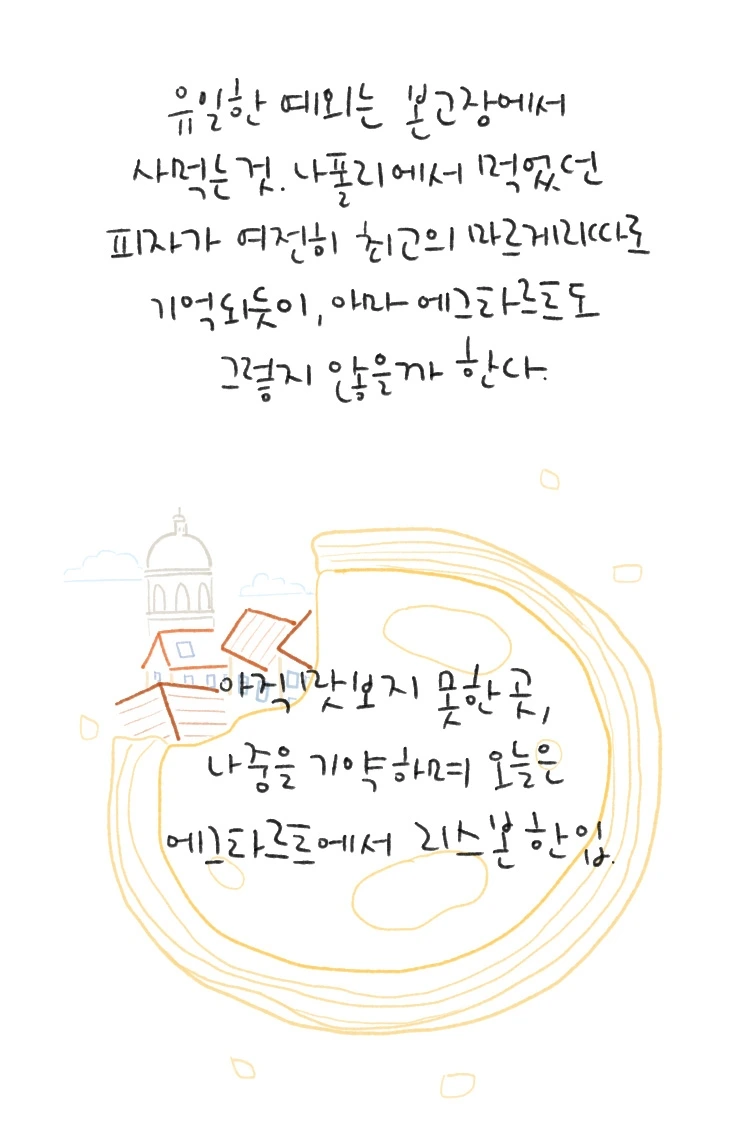 유일한 예외는 본고장에서
사먹는것. 나폴리에서 먹었던
피자가 여전히 최고의 마르게리따로
기억되듯이, 아마 에그타르트도
그렇지 않을까 한다.
아직 맛보지 못한 곳,
나중을 기약하며 오늘은
에그타르트에서 리스본 한입.